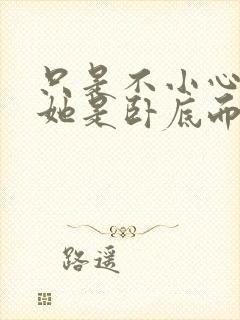 只是不小心
她是卧底而
路遥